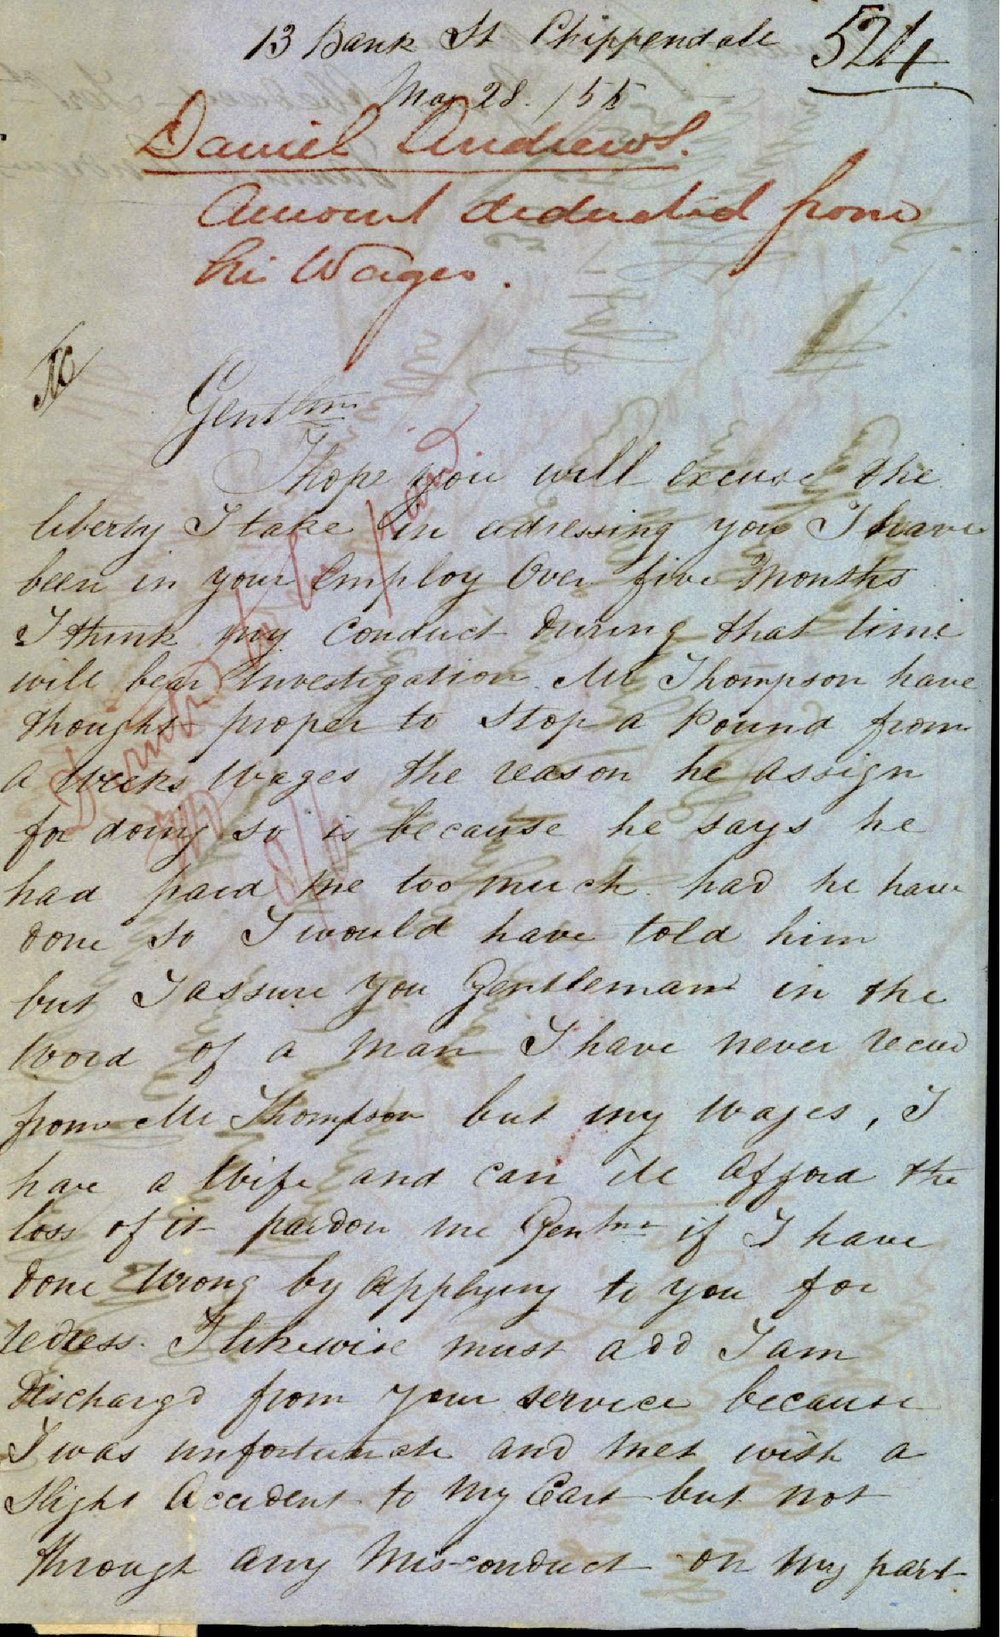 13 Bank St Chippendale
524
Mar 28. /55
Daniel Andrews.
Amount deducted from
his Wages.
Gentlmn
I hope you will excuse the
liberty I take in adressing you I have
been in your Employ Over five Months
I think my Conduct During that time
will bear Investigation Mr Thompson have
thought proper to Stop a Pound from
a Weeks Wages the reason he assign
for doing so is because he says he
had paid me too much had he have
done so I would have told him
but I assure you Gentlemann in the
Word of a Man I have never recud
from Mr Thompson but my Wages, I
have a Wife and can ill afford the
loss of it pardon me Gentmn if I have
done Wrong by Applying to you for
redress. I likewise must add I am
discharg'd from your service because
I was unfortunate and met with a
Slight Accident to My Cart but not
through any Mis-conduct on my part
to be paid